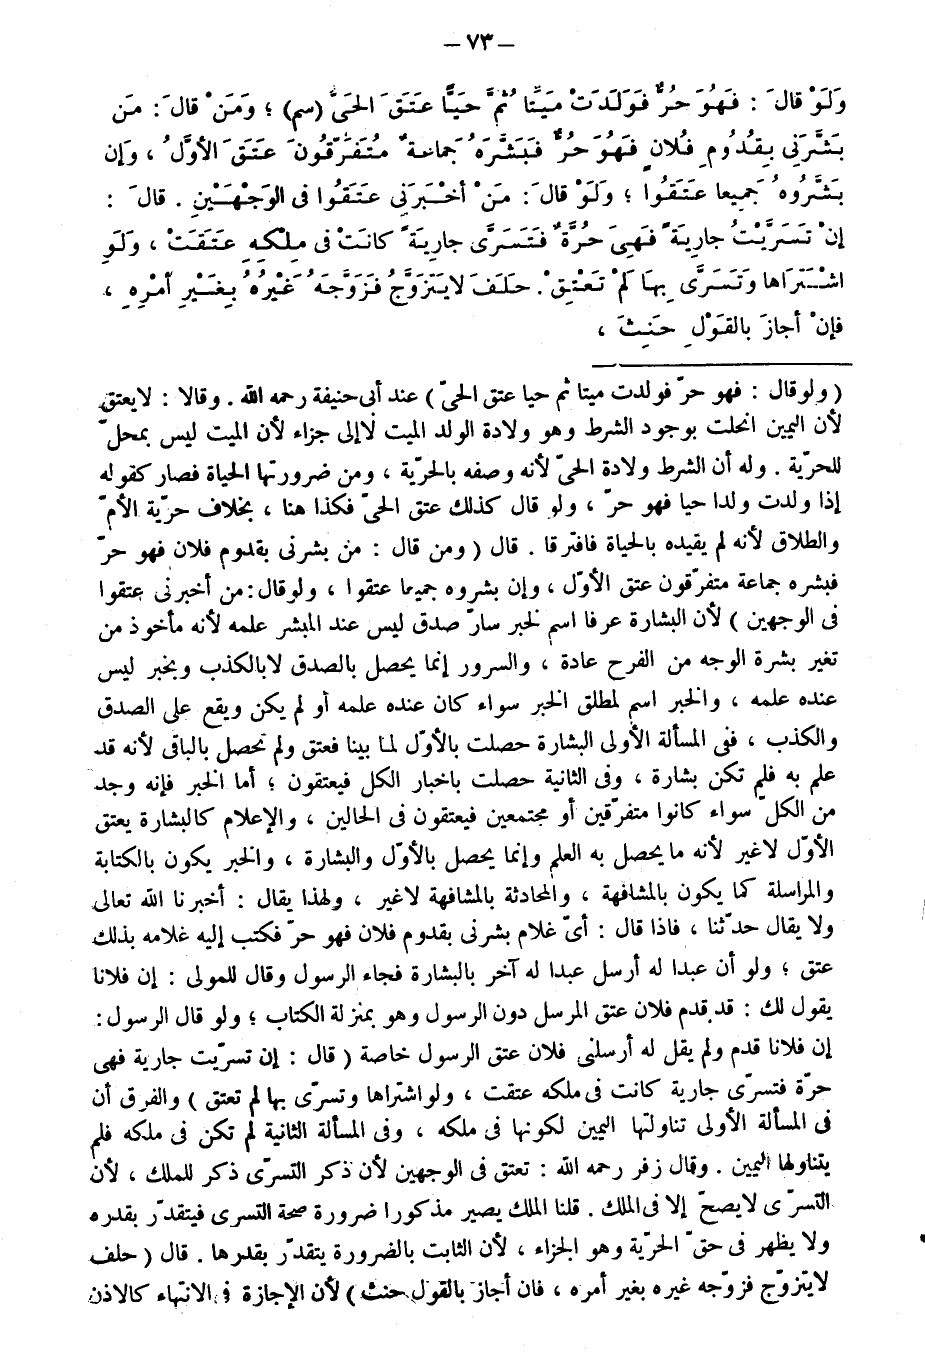 – ٧٣ –
وَلَوْ قالَ : فَهُوَ حُرٌّ فَوَلَدَتْ مَيِّتًا ثُمَّ حَيًّا عَتَقَ الحَىُّ (سم) ؛ وَمَنْ قالَ : مَن
بَشَّرَنِى بِقُدُومِ فُلانٍ فَهُوَ حُرٌّ فَبَشَّرَهُ جَماعَةٌ مُتَفَرّقُونَ عَتَقَ الأوَّلُ ، وَإن
بَشَّرُوهُ جَمِيعا عَتَقُوا ؛ وَلَوْ قالَ : مَنْ أخْبَرَنِى عَتَقُوا فى الوَجْهَيْنِ . قالَ :
إنْ تَسَرَّيْتُ جارِيَةً فَهِىَ حُرَّةٌ فَتَسَرَّى جارِيَةً كانَتْ فى مِلْكِهِ عَتَقَتْ ، وَلَوِ
اشْتَرَاها وَتَسَرَّى بِهَا لَمْ تَعْتِقْ . حلَفَ لايَتَزَوَّجُ فَزَوَّجَهُ غَيْرُهُ بِغَيْرِ أمْرِهِ ،
فإنْ أجازَ بالقَوْلِ حَنِثَ ،
( ولو قال : فهو حرّ فولدت ميتا ثم حيا عتق الحىّ ) عند أبى حنيفة رحمه الله . وقالا : لايعتق
لأن اليمين انحلت بوجود الشرط وهو ولادة الولد الميت لا إلى جزاء لأن الميت ليس بمحلّ
للحرّية . وله أن الشرط ولادة الحىّ لأنه وصفه بالحرّية ، ومن ضرورتها الحياة فصار كقوله
إذا ولدت ولدا حيا فهو حرّ ، ولو قال كذلك عتق الحىّ فكذا هنا ، بخلاف حرّية الأمّ
والطلاق لأنه لم يقيده بالحياة فافترقا . قال ( ومن قال : من بشرنى بقدوم فلان فهو حرّ
فبشره جماعة متفرّقون عتق الأوّل ، وإن بشروه جميعا عتقوا ، ولو قال : من أخبرنى عتقوا
فى الوجهين ) لأن البشارة عرفا اسم لخبر سارّ صدق ليس عند المبشر علمه لأنه مأخوذ من
تغير بشرة الوجه من الفرح عادة ، والسرور إنما يحصل بالصدق لابالكذب وبخبر ليس
عنده علمه ، والخبر اسم لمطلق الخبر سواء كان عنده علمه أو لم يكن ويقع على الصدق
والكذب ، فنى المسألة الأولى البشارة حصلت بالأوّل لما بينا فعتق ولم تحصل بالباقى لأنه قد
علم به فلم تكن بشارة ، وفى الثانية حصلت باخبار الكل فيعتقون ؛ أما الخبر فإنه وجد
من الكلّ سواء كانوا متفرّقين أو مجتمعين فيعتقون فى الحالين ، والإعلام كالبشارة يعتق
الأوّل لاغير لأنه مايحصل به العلم وإنما يحصل بالأوّل والبشارة ، والخبر يكون بالكتابة
والمراسلة كما يكون بالمشافهة ، والمحادثة بالمشافهة لاغير ، ولهذا يقال : أخبرنا الله تعالى
ولا يقال حدّثنا ، فاذا قال : أىّ غلام بشرنى بقدوم فلان فهو حرّ فكتب إليه غلامه بذلك
عتق ؛ ولو أن عبدا له أرسل عبدا له آخر بالبشارة فجاء الرسول وقال للمولى : إن فلانا
يقول لك : قد قدم فلان عتق المرسل دون الرسول وهو بمنزلة الكتاب ؛ ولو قال الرسول :
إن فلانا قدم ولم يقل له أرسلنى فلان عتق الرسول خاصة ( قال : إن تسرّيت جارية فهى
حرّة فتسرّى جارية كانت فى ملكه عتقت ، ولو اشتراها وتسرّى بها لم تعتق ) والفرق أن
فى المسألة الأولى تناولتها اليمين لكونها فى ملكه ، وفى المسألة الثانية لم تكن فى ملكه فلم
يتناولها اليمين . وقال زفر رحمه الله : تعتق فى الوجهين لأن ذكر التسرّى ذكر للملك ، لأن
التسرّى لايصحّ إلا فى الملك . قلنا الملك يصير مذكورا ضرورة صحة التسرى فيتقدّر بقدره
ولا يظهر فى حقّ الحرّية وهو الجزاء ، لأن الثابت بالضرورة يتقدّر بقدرها . قال ( حلف
لايتزوّج فزوّجه غيره بغير أمره ، فان أجاز بالقول حنث ) لأن الإجازة فى الانتهاء كالاذن